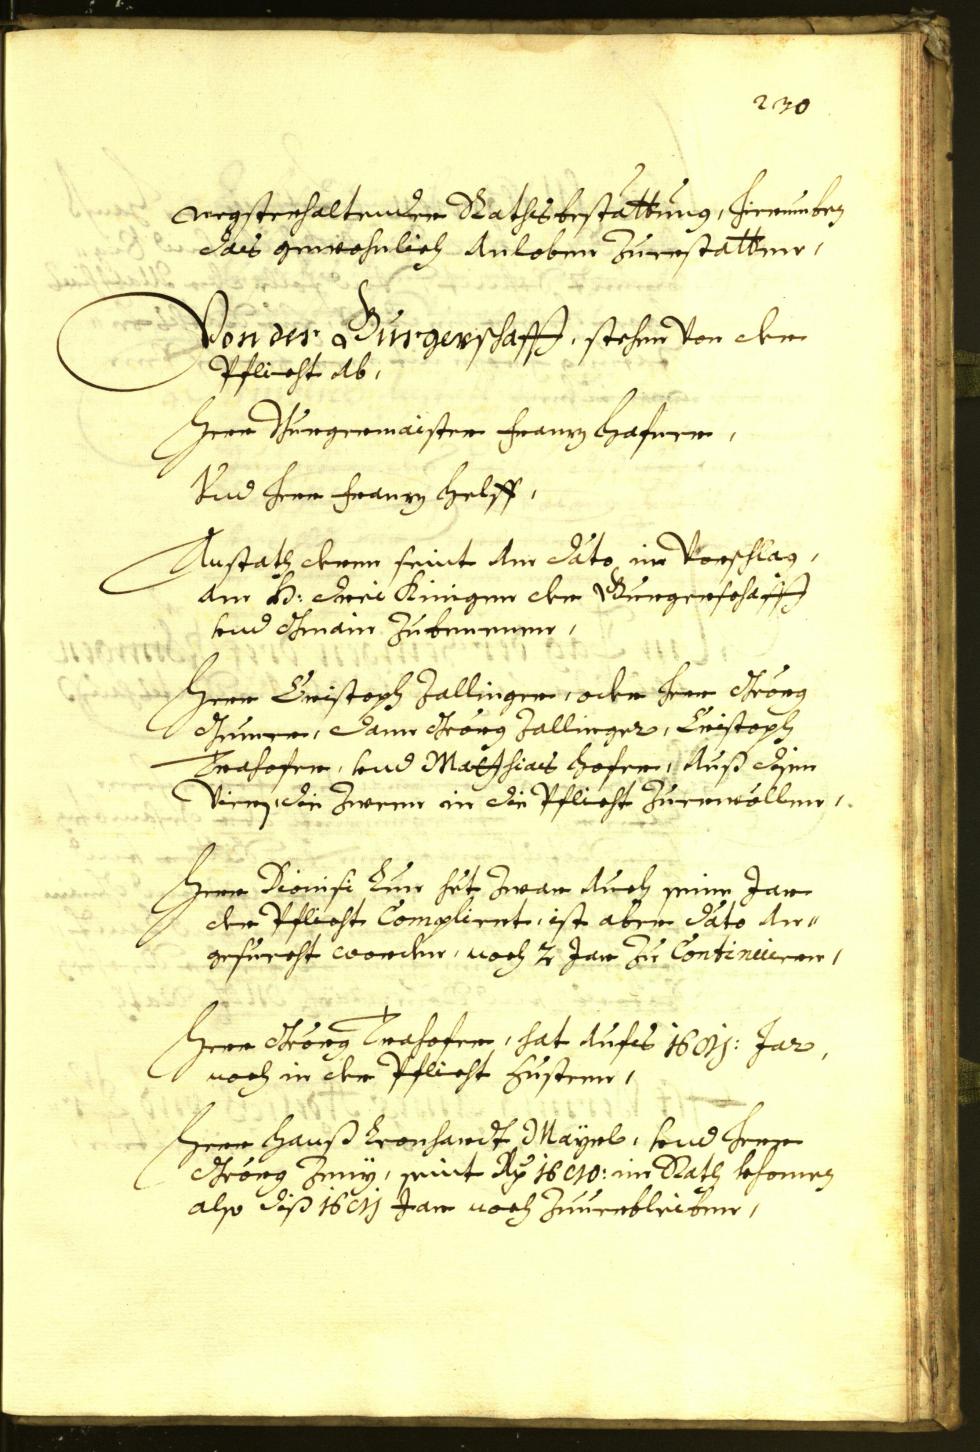 230
negsterhaltender Rathsbestattung, hierumben
das gewohnlich Anloben Zuerstatten,
Von der Burgerschafft, stehen Von der
Pflicht Ab,
Herr Burgermaister Frantz Hafner,
Vnd Herr Frantz Helff,
Anstath deren seint Am dato im Vorschlag,
Am H: drei Kinigen der Burgerschafft
vnd Gmain Zubenennen,
Herr Cristoph Zallinger, oder Herr Geörg
dann Geörg Zallinger, Cristoph
Trahofer, vnd Matthias Hofer, Auß disen
Viern, die Zween in die Pflicht Zuerwöllen,
Herr Dionisi hat Zwar Auch seine Jar
der Pflicht Compliert, ist aber dato An-
gesuecht worden, noch 2 Jar Zu Continuiern,
Herr Geörg Trahofer, hat Aufs Jar,
noch in der Pflicht Zusteen,
Herr Hanß Leonhardt Mayrl, vnd Herr
Geörg seint im Rath khomen
also diß Jar noch Zuuerbleiben,